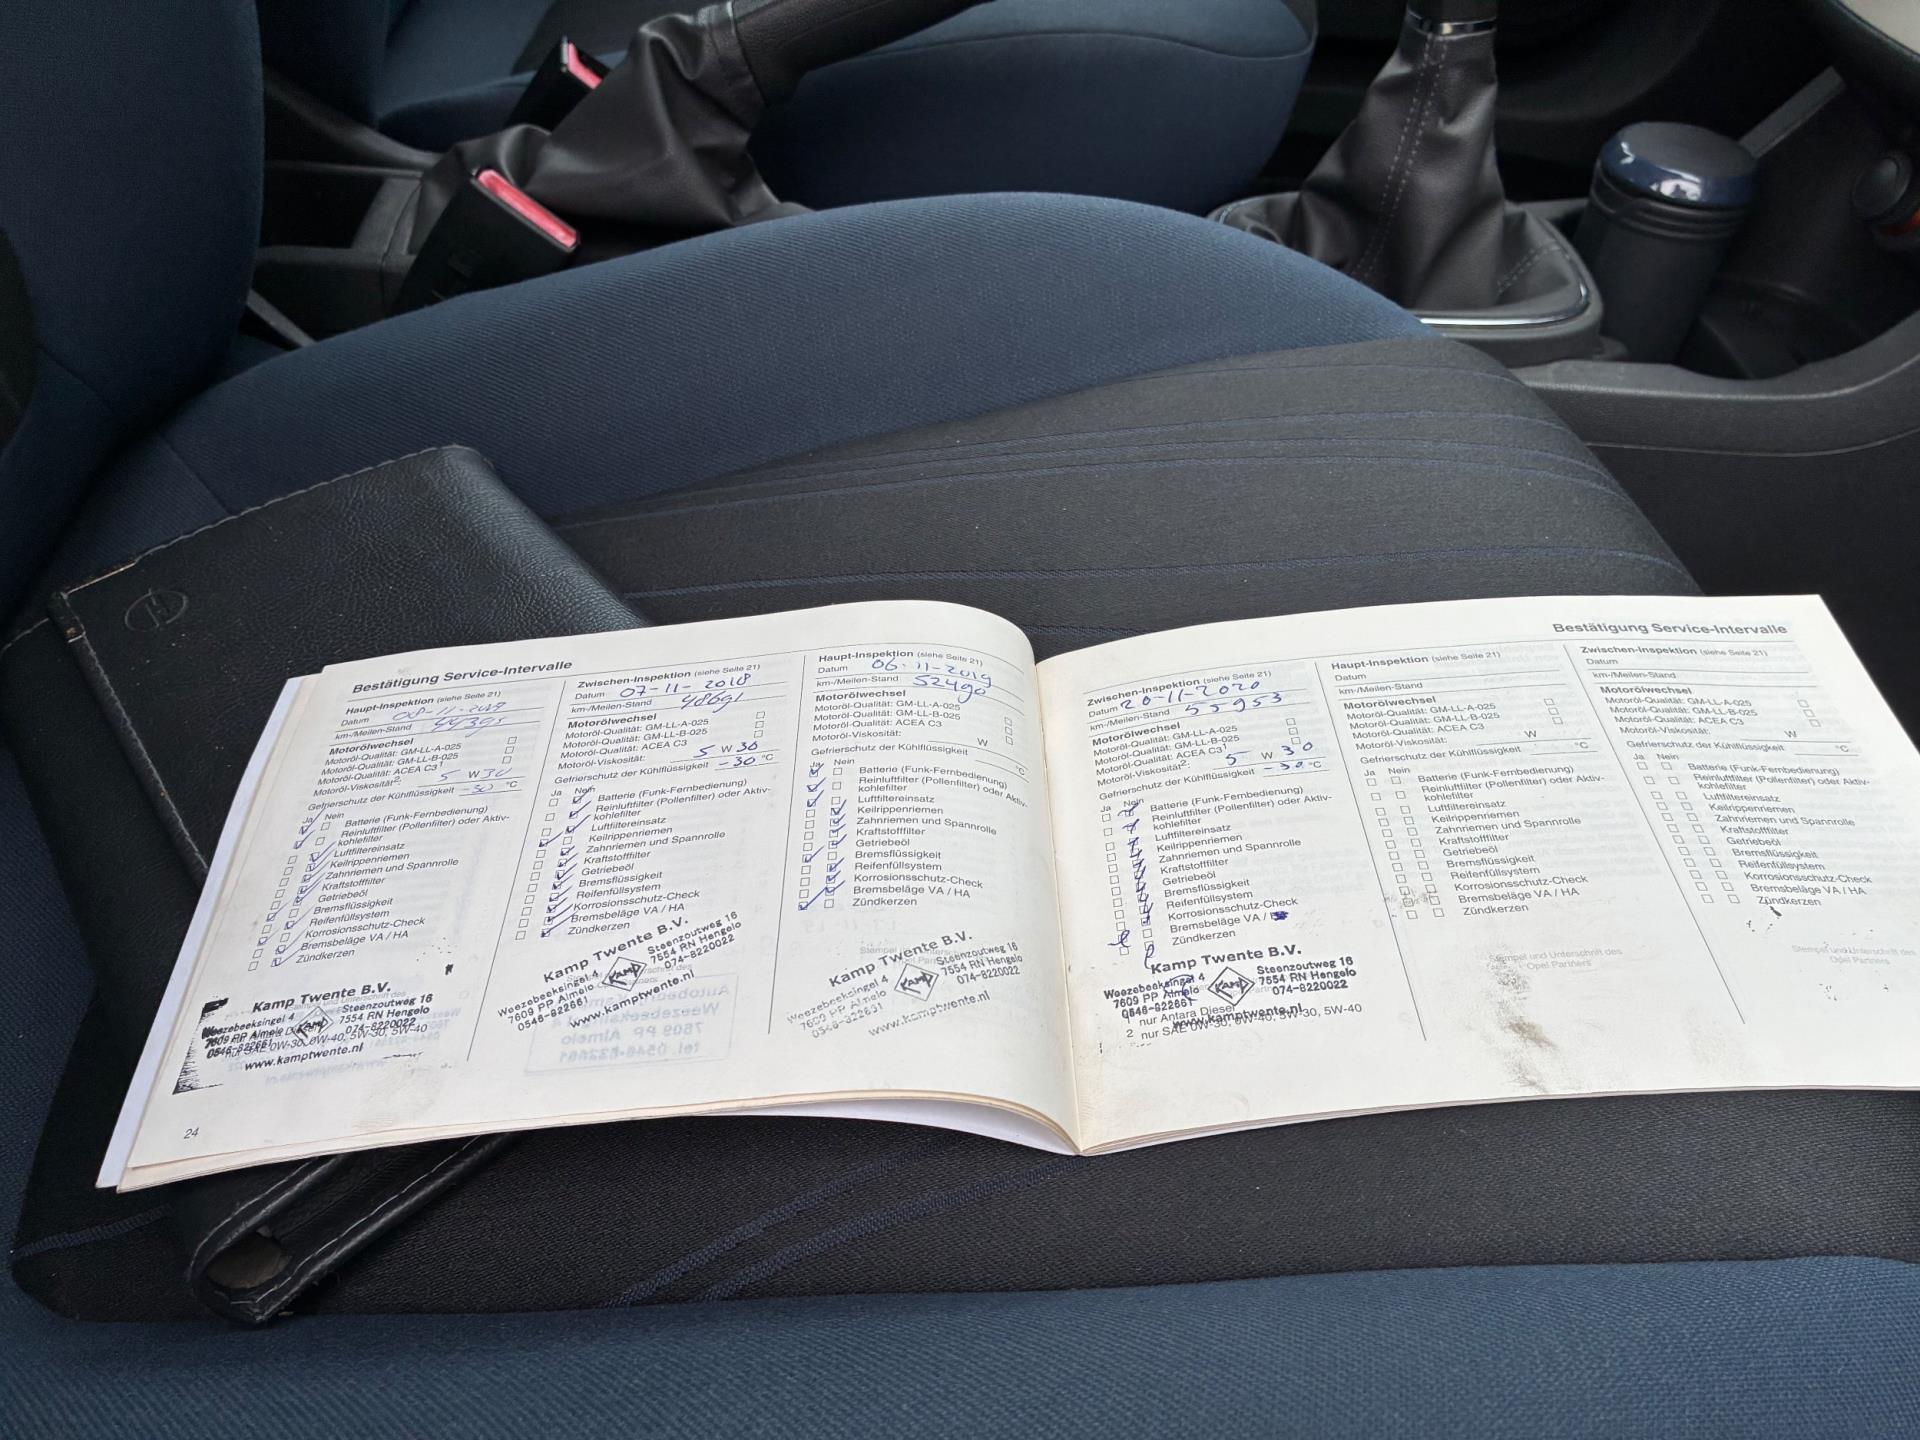 Bestätigung Service-Intervalle
Haupt-Inspektion (siehe Seite 21)
Datum
km-/Meilen-Stand 44395
Motorölwechsel
Motoröl-Qualität: GM-LL-A-025
Motoröl-Qualität: GM-LL-B-025
Motoröl-Qualität: ACEA C3¹
Motoröl-Viskosität²: 5 W 30
Gefrierschutz der Kühlflüssigkeit -30 °C
Ja Nein
Batterie (Funk-Fernbedienung)
Reinluftfilter (Pollenfilter) oder Aktiv-
kohlefilter
Luftfiltereinsatz
Keilrippenriemen
Zahnriemen und Spannrolle
Kraftstofffilter
Getriebeöl
Bremsflüssigkeit
Reifenfüllsystem
Korrosionsschutz-Check
Bremsbeläge VA / HA
Zündkerzen
Kamp Twente B.V.
Weezebeeksingel 4
7609 PP Almelo
0546-822661
KAMP
Steenzoutweg 16
7554 RN Hengelo
074-8220022
nur SAE 0W-30, 0W-40, 5W-30, 5W-40
www.kamptwente.nl
24
Zwischen-Inspektion (siehe Seite 21)
Datum 07-11-2018
km-/Meilen-Stand 48691
Motorölwechsel
Motoröl-Qualität: GM-LL-A-025
Motoröl-Qualität: GM-LL-B-025
Motoröl-Qualität: ACEA C3
Motoröl-Viskosität: 5 W 30
Gefrierschutz der Kühlflüssigkeit -30 °C
Ja Nein
Batterie (Funk-Fernbedienung)
Reinluftfilter (Pollenfilter) oder Aktiv-
kohlefilter
Luftfiltereinsatz
Keilrippenriemen
Zahnriemen und Spannrolle
Kraftstofffilter
Getriebeöl
Bremsflüssigkeit
Reifenfüllsystem
Korrosionsschutz-Check
Bremsbeläge VA / HA
Zündkerzen
Kamp Twente B.V.
Weezebeeksingel 4
7609 PP Almelo
0546-822661
KAMP
Steenzoutweg 16
7554 RN Hengelo
074-8220022
www.kamptwente.nl
Haupt-Inspektion (siehe Seite 21)
Datum 06-11-2019
km-/Meilen-Stand 52490
Motorölwechsel
Motoröl-Qualität: GM-LL-A-025
Motoröl-Qualität: GM-LL-B-025
Motoröl-Qualität: ACEA C3
Motoröl-Viskosität: W
Gefrierschutz der Kühlflüssigkeit °C
Ja Nein
Batterie (Funk-Fernbedienung)
Reinluftfilter (Pollenfilter) oder Aktiv-
kohlefilter
Luftfiltereinsatz
Keilrippenriemen
Zahnriemen und Spannrolle
Kraftstofffilter
Getriebeöl
Bremsflüssigkeit
Reifenfüllsystem
Korrosionsschutz-Check
Bremsbeläge VA / HA
Zündkerzen
Kamp Twente B.V.
Weezebeeksingel 4
7609 PP Almelo
0546-822661
KAMP
Steenzoutweg 16
7554 RN Hengelo
074-8220022
www.kamptwente.nl
Bestätigung Service-Intervalle
Zwischen-Inspektion (siehe Seite 21)
Datum 20-11-2020
km-/Meilen-Stand 55953
Motorölwechsel
Motoröl-Qualität: GM-LL-A-025
Motoröl-Qualität: GM-LL-B-025
Motoröl-Qualität: ACEA C3¹
Motoröl-Viskosität²: 5 W 30
Gefrierschutz der Kühlflüssigkeit -30 °C
Ja Nein
Batterie (Funk-Fernbedienung)
Reinluftfilter (Pollenfilter) oder Aktiv-
kohlefilter
Luftfiltereinsatz
Keilrippenriemen
Zahnriemen und Spannrolle
Kraftstofffilter
Getriebeöl
Bremsflüssigkeit
Reifenfüllsystem
Korrosionsschutz-Check
Bremsbeläge VA /
Zündkerzen
Kamp Twente B.V.
Weezebeeksingel 4
7609 PP Almelo
0546-822661
KAMP
Steenzoutweg 16
7554 RN Hengelo
074-8220022
1 nur Antara Diesel
www.kamptwente.nl
2 nur SAE 0W-30, 0W-40, 5W-30, 5W-40
Haupt-Inspektion (siehe Seite 21)
Datum
km-/Meilen-Stand
Motorölwechsel
Motoröl-Qualität: GM-LL-A-025
Motoröl-Qualität: GM-LL-B-025
Motoröl-Qualität: ACEA C3
Motoröl-Viskosität: W
Gefrierschutz der Kühlflüssigkeit °C
Ja Nein
Batterie (Funk-Fernbedienung)
Reinluftfilter (Pollenfilter) oder Aktiv-
kohlefilter
Luftfiltereinsatz
Keilrippenriemen
Zahnriemen und Spannrolle
Kraftstofffilter
Getriebeöl
Bremsflüssigkeit
Reifenfüllsystem
Korrosionsschutz-Check
Bremsbeläge VA / HA
Zündkerzen
Stempel und Unterschrift des
Opel Partners
Zwischen-Inspektion (siehe Seite 21)
Datum
km-/Meilen-Stand
Motorölwechsel
Motoröl-Qualität: GM-LL-A-025
Motoröl-Qualität: GM-LL-B-025
Motoröl-Qualität: ACEA C3
Motoröl-Viskosität: W
Gefrierschutz der Kühlflüssigkeit °C
Ja Nein
Batterie (Funk-Fernbedienung)
Reinluftfilter (Pollenfilter) oder Aktiv-
kohlefilter
Luftfiltereinsatz
Keilrippenriemen
Zahnriemen und Spannrolle
Kraftstofffilter
Getriebeöl
Bremsflüssigkeit
Reifenfüllsystem
Korrosionsschutz-Check
Bremsbeläge VA / HA
Zündkerzen
Stempel und Unterschrift des
Opel Partners